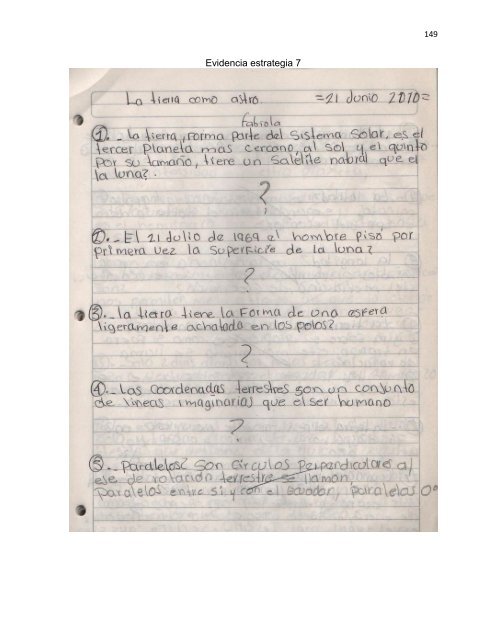 149
Evidencia estrategia 7
La tierra como astro. =21 Junio 2010=
Fabiola
1.- La tierra, forma parte del Sistema Solar, es el
tercer Planeta mas cercano, al sol y el quinto
por su tamaño, tiene un Salélite natural que el
la luna?.
?
2.- El 21 dulio de 1969 el hombre pisó por
primera vez la superficie de la luna?
?
3.- la tierra tiene la Forma de una esfera
ligeramente achatada en los polos?
?
4.- Las coordenadas terrestres son un conjunto
de lineas imaginarias que el ser humano
?
5.- Paralelos? Son Circulos Perpendiculares al
eje de rotación terrestre se llaman,
Paralelos entre si y con el Ecuador, paralelas 0°